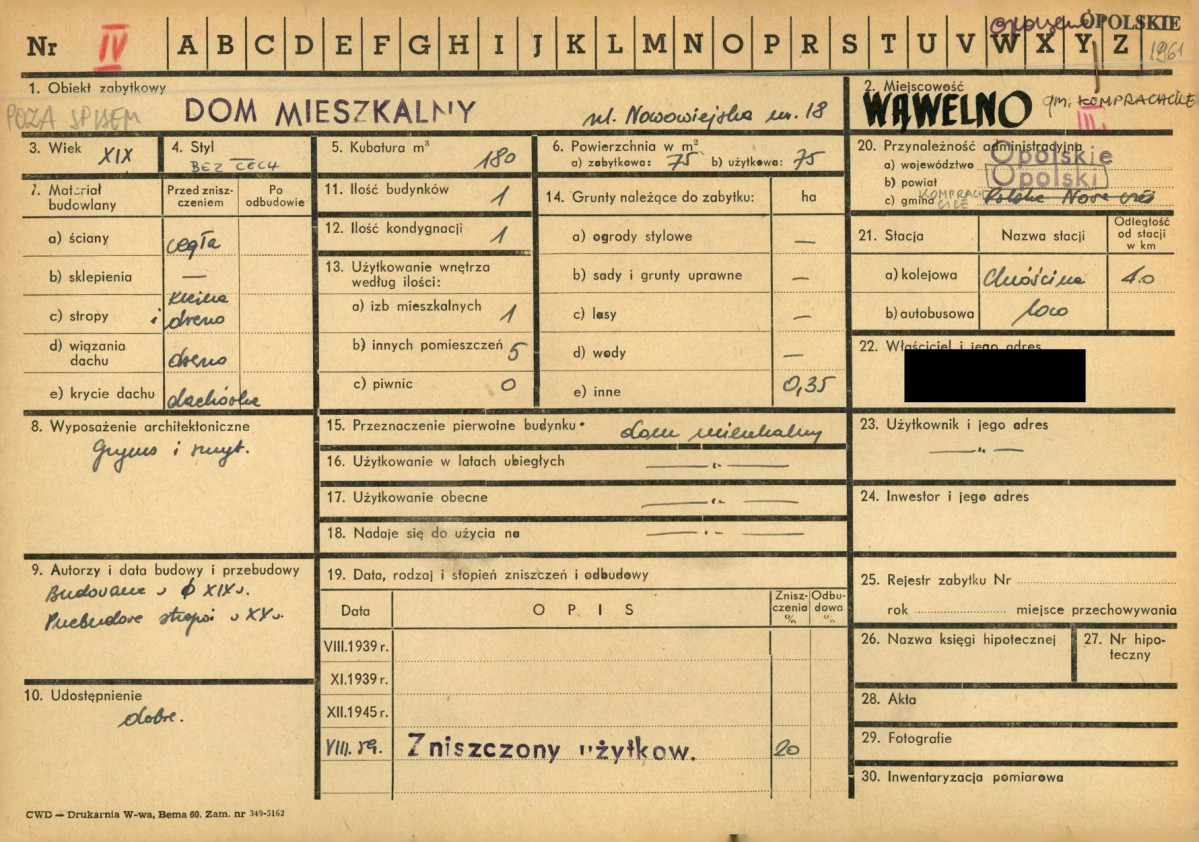 Nr IV A B C D E F G H I J K L M N O P R S T U V W X Y Z OPOLSKIE
1961
1. Obiekt zabytkowy
POZA SPISEM
DOM MIESZKALNY ul. Nowowiejska nr. 18
2. Miejscowość
WĄWELNO gm. KOMPRACHCICE
III.
3. Wiek XIX
4. Styl
BEZ CECH
5. Kubatura m³ 180
6. Powierzchnia w m²
a) zabytkowa: 75 b) użytkowa: 75
7. Materiał budowlany
Przed zniszczeniem
Po odbudowie
a) ściany cegła
b) sklepienia —
c) stropy i drewno
d) wiązania dachu drewno
e) krycie dachu dachówka
11. Ilość budynków 1
12. Ilość kondygnacji 1
13. Użytkowanie wnętrza według ilości:
a) izb mieszkalnych 1
b) innych pomieszczeń 5
c) piwnic 0
14. Grunty należące do zabytku: ha
a) ogrody stylowe —
b) sady i grunty uprawne —
c) lasy —
d) wody —
e) inne 0,35
20. Przynależność administracyjna
a) województwo Opolskie
b) powiat Opolski
c) gmina KOMPRACHCICE Polska Nowa Wieś
21. Stacja
Nazwa stacji
Odległość od stacji w km
a) kolejowa Chróścina 4.0
b) autobusowa loco
22. Właściciel i jego adres
8. Wyposażenie architektoniczne
Gzyms i szczyt.
15. Przeznaczenie pierwotne budynku dom mieszkalny
16. Użytkowanie w latach ubiegłych —„—
17. Użytkowanie obecne —„—
18. Nadaje się do użycia na —„—
23. Użytkownik i jego adres
—„—
24. Inwestor i jego adres
9. Autorzy i data budowy i przebudowy
Budowane w XIX w.
Przebudowa stropów w XX w.
10. Udostępnienie
dobre.
19. Data, rodzaj i stopień zniszczeń i odbudowy
Data
OPIS
Zniszczenia %
Odbudowa %
VIII.1939 r.
XI.1939 r.
XII.1945 r.
VIII. 59. Zniszczony użytkow. 20
25. Rejestr zabytku Nr
rok miejsce przechowywania
26. Nazwa księgi hipotecznej
27. Nr hipoteczny
28. Akta
29. Fotografie
30. Inwentaryzacja pomiarowa
CWD — Drukarnia W-wa, Bema 60. Zam. nr 349-5162